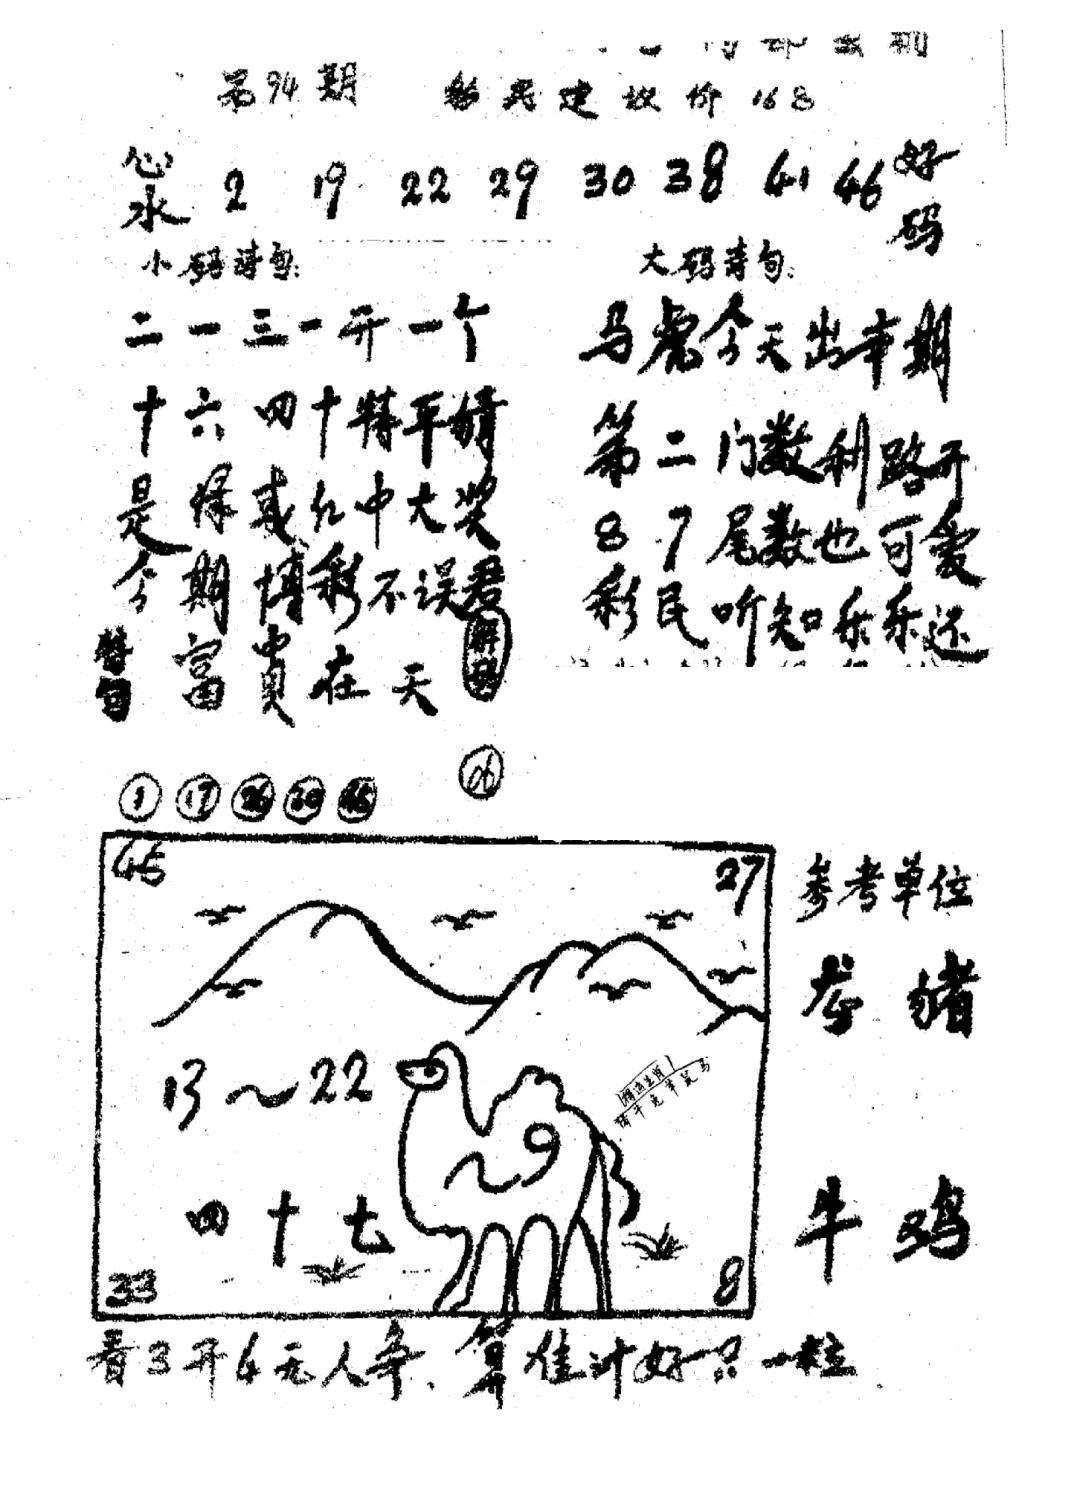 第94期 彩民建议价168
心水 2 19 22 29 30 38 41 46 好码
小码诗句:
二一三一开一个
十六四十特平婧
是择或红中大奖
今期博彩不误君
特句 富贵在天
解码 06
大码诗句:
马虎今天出本期
第二门数利路开
87尾数也可爱
彩民听知乐乐还
1 17 26 30 45
45 27
13~22
9
四十七
33 8
参考单位
龙 猪
牛 鸡
看3开4无人争、算准计好只一粒